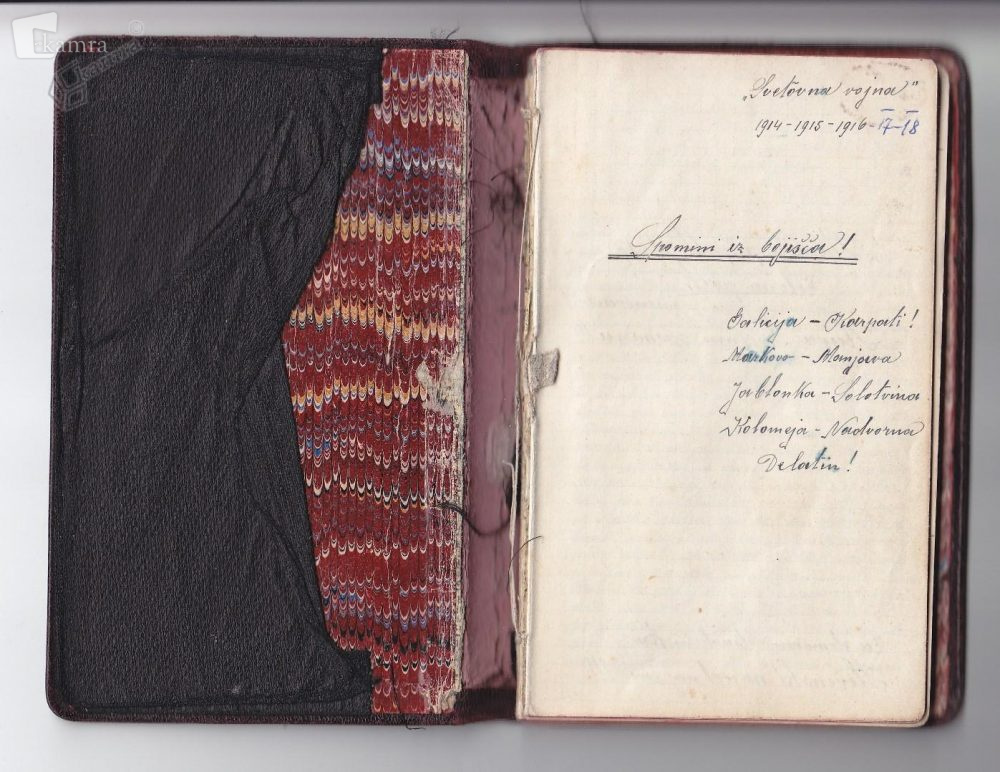 kamra
„Svetovna vojna"
1914-1915-1916-17-18
Spomini iz bojišča!
Galicija - Karpati!
Markovo - Manjava
Jablonka - Solotvina
Kolomeja - Nadvorna
Delatin!